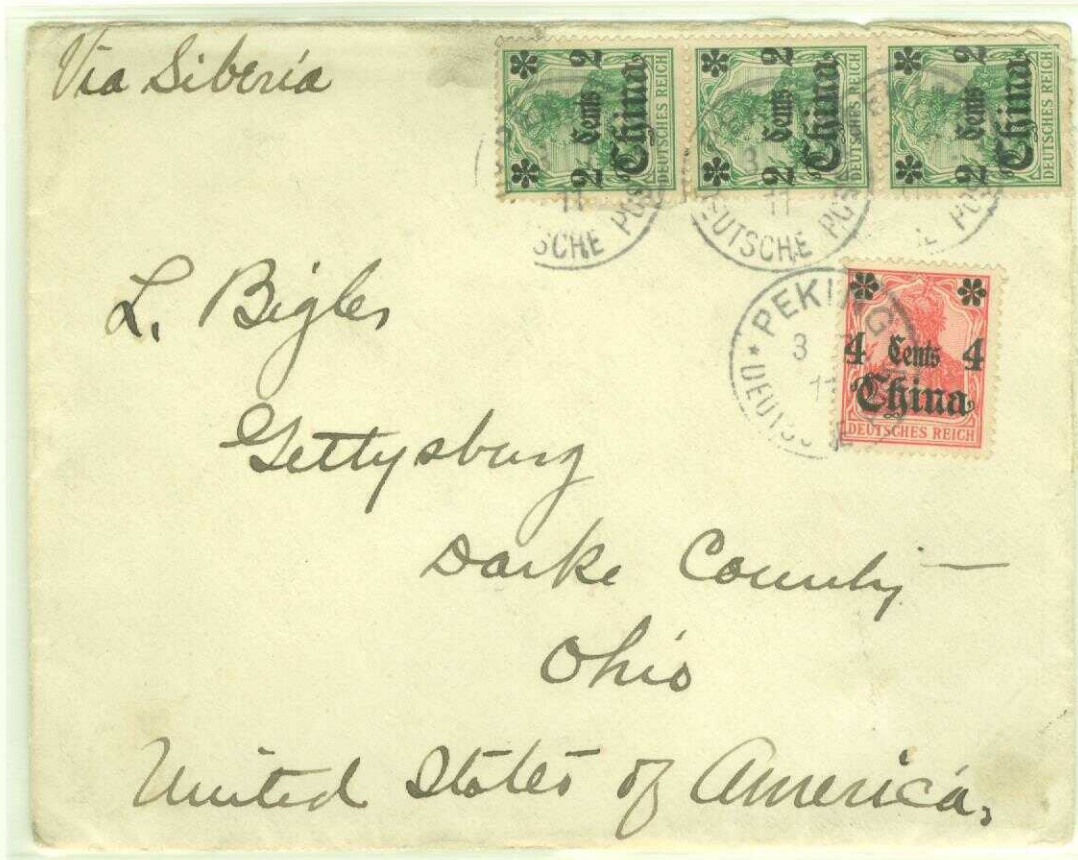 Via Siberia
2 Cents 2
China
DEUTSCHES REICH
2 Cents 2
China
DEUTSCHES REICH
2 Cents 2
China
DEUTSCHES REICH
11
SCHE POS
3
11
DEUTSCHE POS
PEKING
3
11
4 Cents 4
China
DEUTSCHES REICH
L. Bigler
Gettysburg
Darke County
Ohio
United States of America,